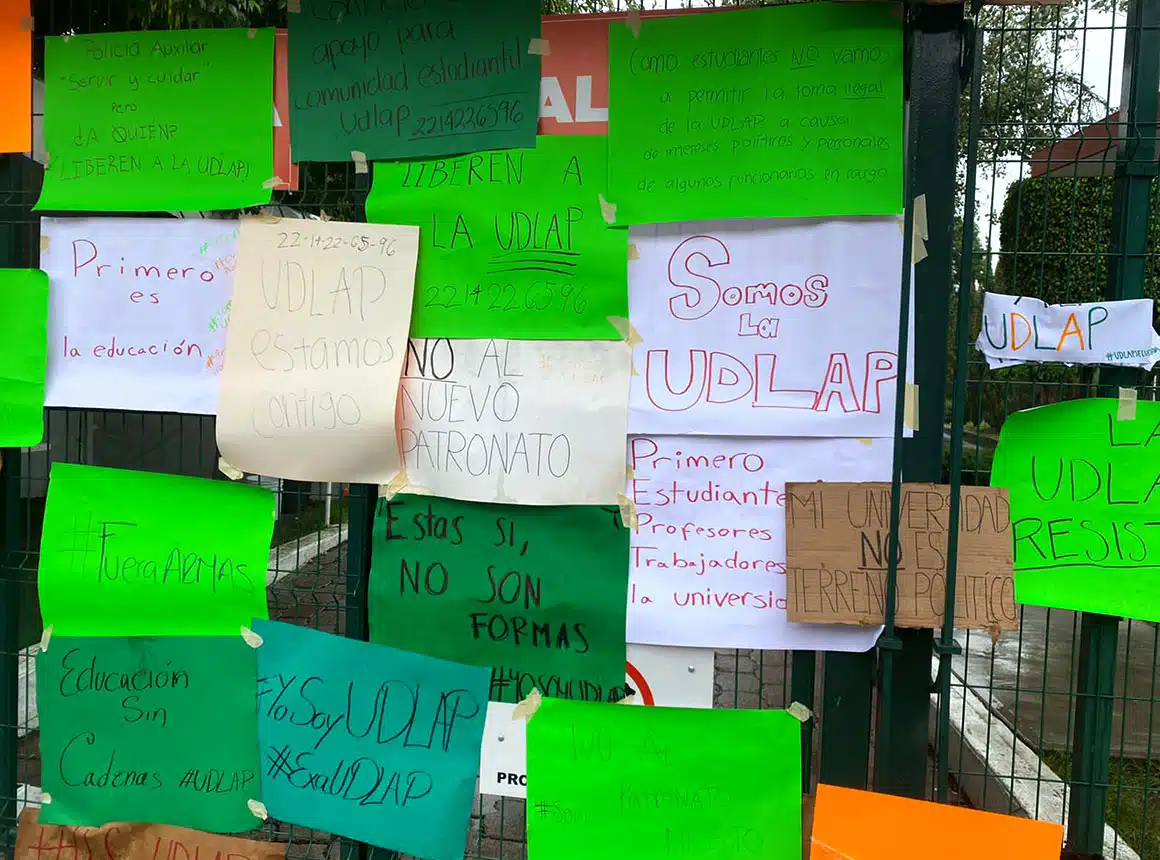 Policía Auxilar
"Servir y cuidar"
Pero
¿A QUIÉN?
¡LIBEREN A LA UDLAP!
apoyo para
comunidad estudiantil
Udlap 2214226596
AL
Como estudiantes NO vamos
a permitir la toma ilegal
de la UDLAP a causa
de intereses políticos y personales
de algunos funcionarios en cargo
LIBEREN A
LA UDLAP
2214226596
Primero
es
la educación
22-14-22-65-96
UDLAP
estamos
contigo
NO AL
NUEVO
PATRONATO
Somos
La
UDLAP
UDLAP
Primero
Estudiante
Profesores
Trabajadores
la universid
MI UNIVERSIDAD
NO ES
TERRENO POLITÍCO
LA
UDLA
RESIST
#FueraARMAS
"Estas SI,
NO SON
FORMAS
#YOSOYUDLAP
Educación
Sin
Cadenas #UDLAP
#YoSoyUDLAP
#ExaUDLAP
PRO
NO AL
PATRONATO
UDLAP